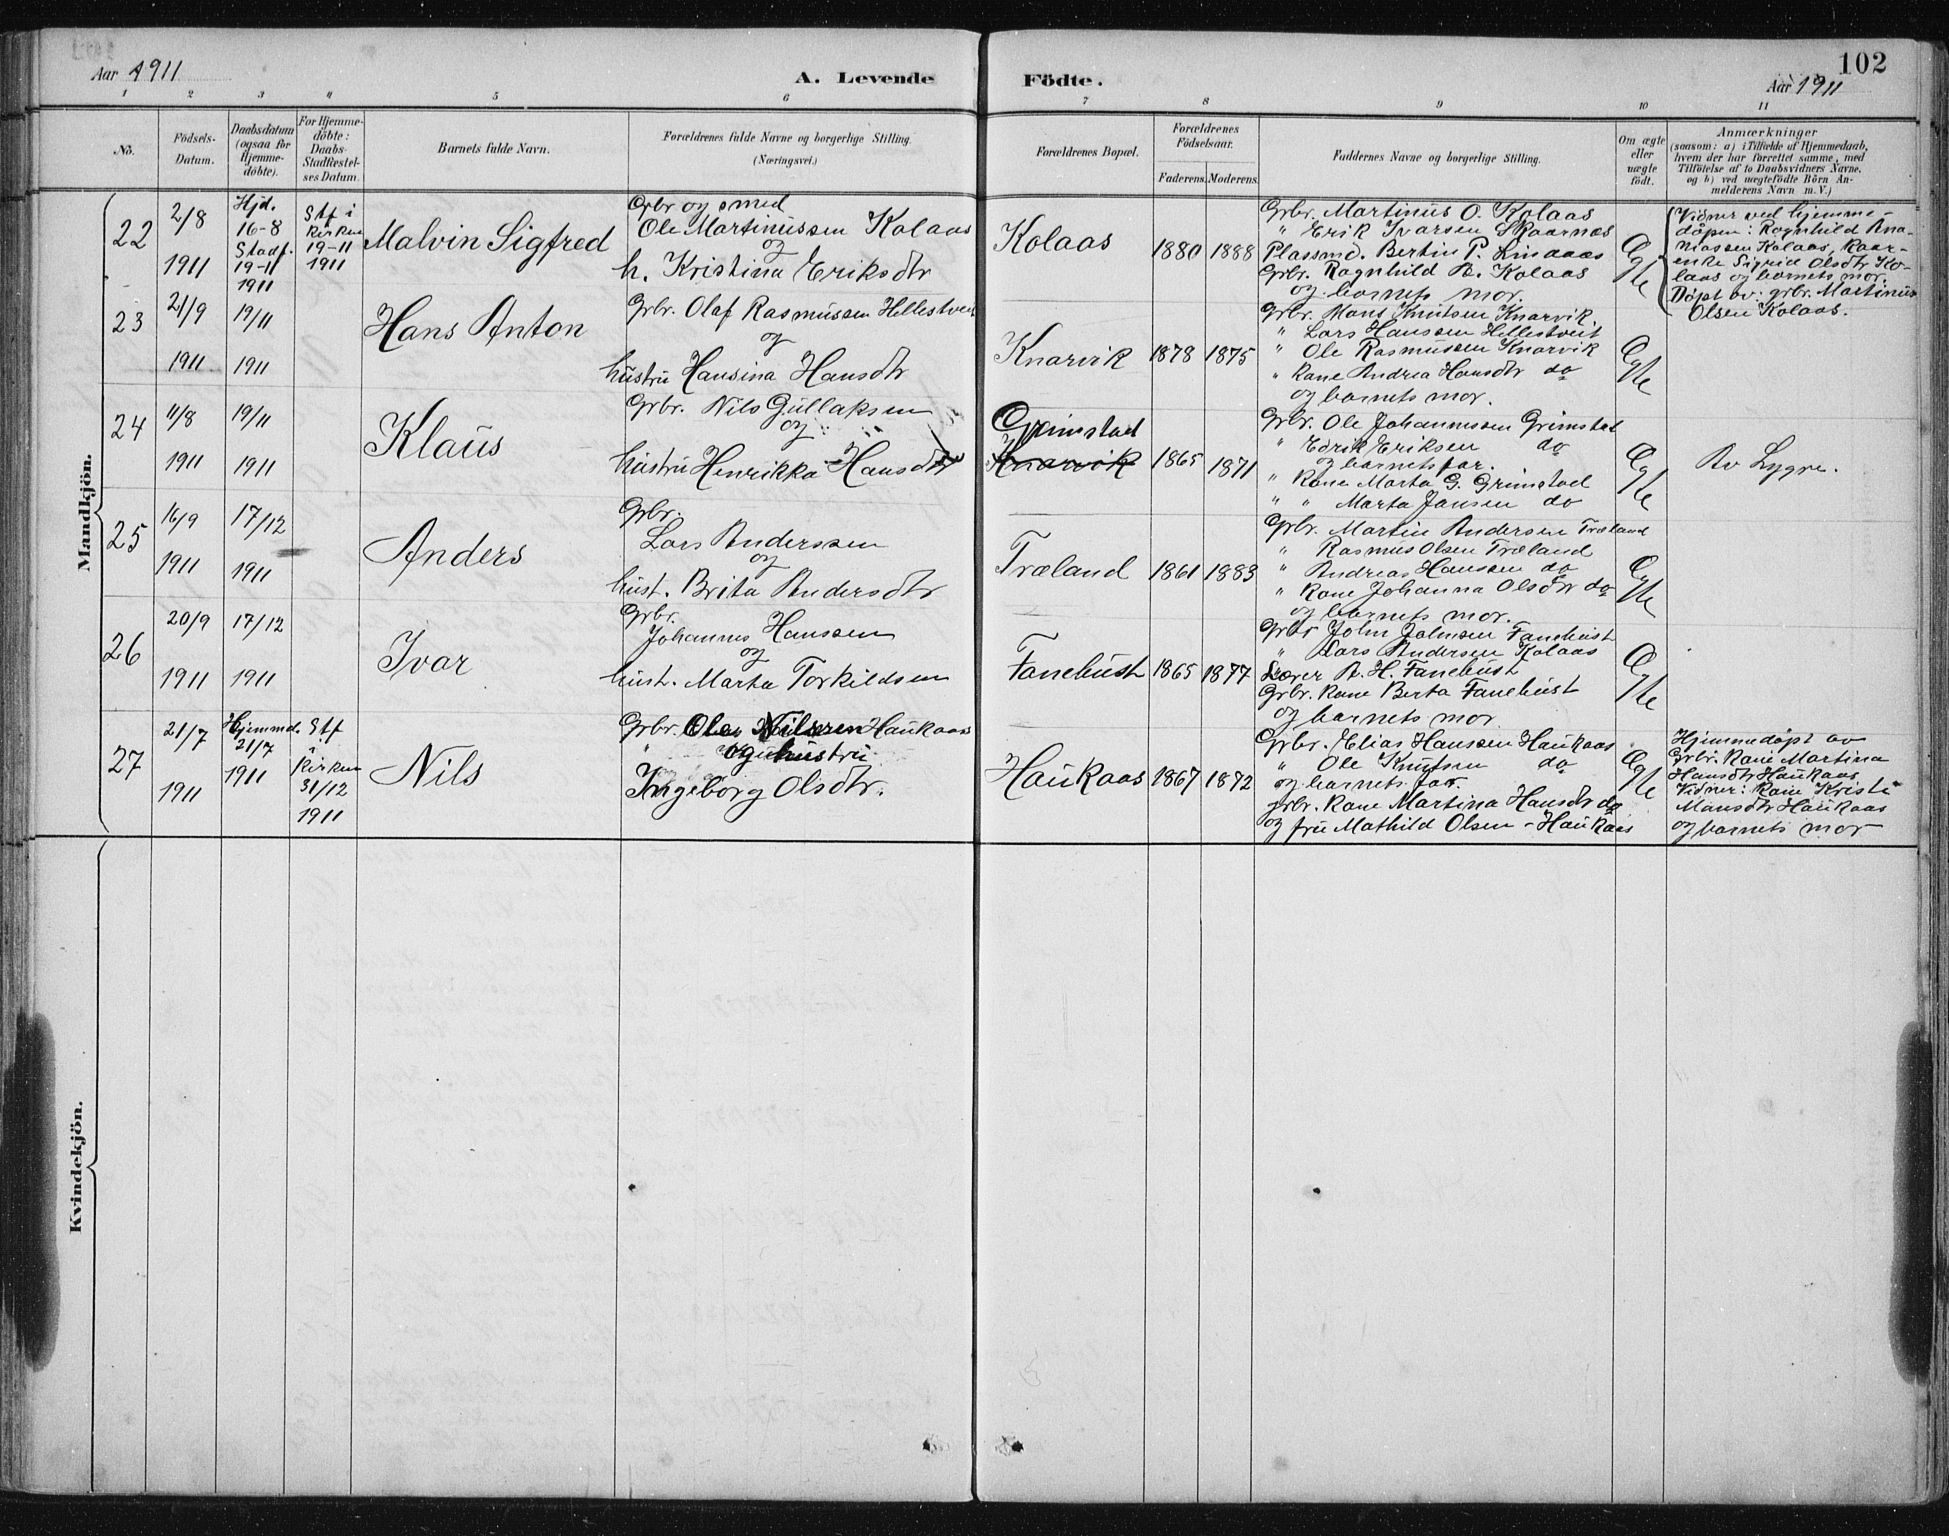 Aar 1911
A. Levende
Födte.
102
Aar 1911
1 2 3 4 5 6 7 8 9 10 11
No.
Födsels-
Datum.
Daabsdatum
(ogsaa for
Hjemme-
döbte).
For Hjemme-
döbte:
Daabs-
Stadfæstel-
ses Datum.
Barnets fulde Navn.
Forældrenes fulde Navne og borgerlige Stilling.
(Næringsvei.)
Forældrenes Bopæl.
Forældrenes
Födselsaar.
Faderens. Moderens.
Faddernes Navne og borgerlige Stilling.
Om ægte
eller
uægte
födt.
Anmærkninger
(saasom: a) i Tilfælde af Hjemmedaab,
hvem der har forrettet samme, med
Tilföielse af to Daabsvidners Navne.
og b) ved uægtefödte Börn An-
melderens Navn m. V.)
Mandkjön.
22
2/8
1911
Hjd.
16-8
Stadf.
19-11
1911
Stf i
kirken
19-11
1911
Malvin Sigfred
Grbr og smed
Ole Martinussen Kolaas
og
h. Kristina Eriksdtr
Kolaas
1880 1888
Grbr. Martinus O. Kolaas
" Erik Ivarsen Skaarnes
Plassmd. Bertin P. Lindaas
Grbr. Ragnhild A. Kolaas
og barnets mor.
Egte
Vidner ved hjemme-
dåpen: Ragnhild Ana-
niassen Kolaas, Kaar-
enke Sigrid Olsdtr Ko-
laas og barnets mor.
Døpt av: grbr. Martinus
Olsen Kolaas.
23
21/9
1911
19/11
1911
Hans Anton
Grbr. Olaf Rasmussen Hellestveit
og
hustru Hansina Hansdtr
Knarvik
1878 1875
Grbr. Mons Knutsen Knarvik
" Lars Hanssen Hellestveit
" Ole Rasmussen Knarvik
" Kone Andrea Hansdtr do
og barnets mor.
Egte
24
11/8
1911
19/11
1911
Klaus
Grbr. Nils Gullaksen
og
hustru Henrikka Hansdtr
Grimstad
Knarvik
1865 1871
Grbr. Ole Johannssen Grimstad
" Edrik Eriksen do
og barnets far.
" Kone Marta G. Grimstad
" " Marta Jansen do
Egte
Av Lygre.
25
16/9
1911
17/12
1911
Anders
Grbr.
Lars Anderssen
og
hust. Brita Andersdtr
Træland
1861 1883
Grbr. Martin Andersen Træland
" Rasmus Olsen Træland
" Andreas Hanssen do
" Kone Johanna Olsdtr do
og barnets mor.
Egte
26
20/9
1911
17/12
1911
Ivar
Grbr.
Johannes Hanssen
og
hust. Marta Torkildsen
Fanebust
1865 1877
Grbr John Johnsen Fanebust
" Lars Andersen Kolaas
Lærer A. H. Fanebust
Grbr. Kone Berta Fanebust
og barnets mor
Egte
27
21/7
1911
Hjemmd.
21/7
1911
Stf
i
kirken
31/12
1911
Nils
Grbr. Ole Nilssen Haukaas
" og hustru
Ingeborg Olsdtr.
Haukaas
1867 1872
Grbr. Elias Hanssen Haukaas
" Ole Knutsen do
og barnets far.
grbr. Kone Martina Hansdtr do
og fru Mathild Olsen - Haukaas
Egte
Hjemmedøpt av
Grbr. Kone Martina
Hansdtr Haukaas
Vidner: Kone Kristi
Mansdtr Haukaas
og barnets mor
Kvindekjön.